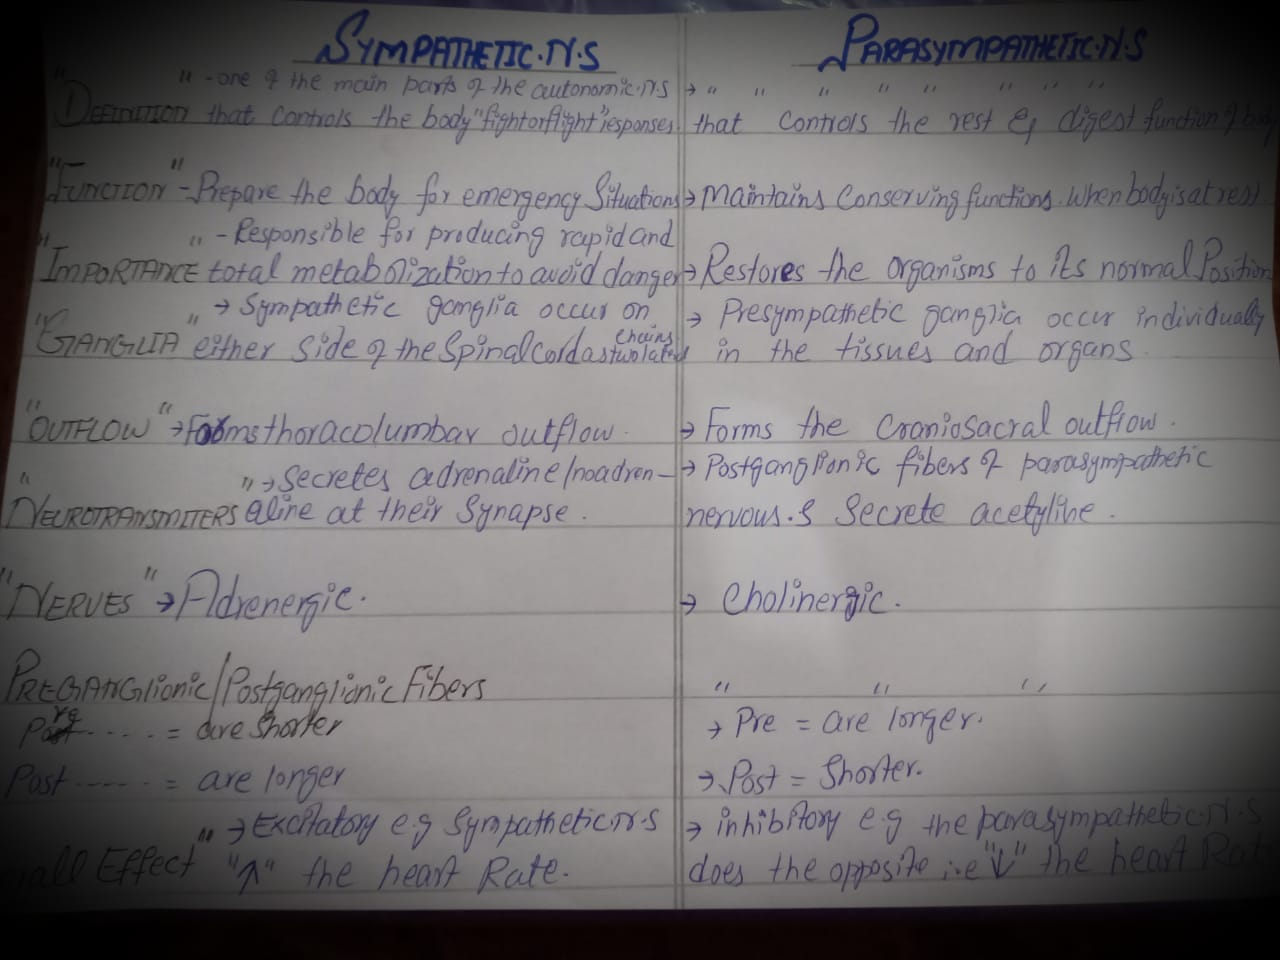 SYMPATHETIC.N.S
PARASYMPATHETIC.N.S
" " - one of the main parts of the autonomic.N.S
DEFINITION that controls the body "fightorflight" responses
→ " " " " " " " "
that controls the rest & digest function of body
"FUNCTION" - Prepare the body for emergency Situations
→ Maintains Conserving functions. When body is at rest
" - Responsible for producing rapid and
"IMPORTANCE total metabolization to avoid danger
→ Restores the organisms to its normal Position
" → Sympathetic ganglia occur on
chains
"GANGLIA either Side of the Spinal Cord as two lateral
→ Presympathetic ganglia occur individually
in the tissues and organs
"OUTFLOW" → Forms thoracolumbar outflow.
→ Forms the Craniosacral outflow.
" " → Secretes adrenaline/noadren-
NEUROTRANSMITERS aline at their Synapse.
→ Postganglionic fibers of parasympathetic
nervous.S Secrete acetyline.
"NERVES" → Adrenergic.
→ Cholinergic.
PREGANGlionic/Postganglionic Fibers
" " "
Pre ..... = are Shorter
→ Pre = are longer.
Post ------ = are longer
→ Post = Shorter.
" → Excitatory e.g Sympathetic.N.S
Effect "↑" the heart Rate.
→ inhibitory e.g the parasympathetic.N.S
does the opposite i.e "↓" the heart Rate